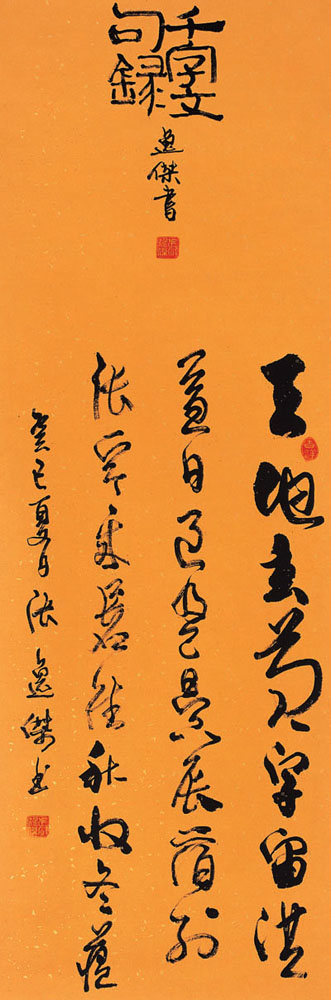 千字文
句録
逸傑書
天地玄黄宇宙洪
荒日月盈昃辰宿列
張寒來暑往秋收冬蔵
癸巳夏日張逸傑书